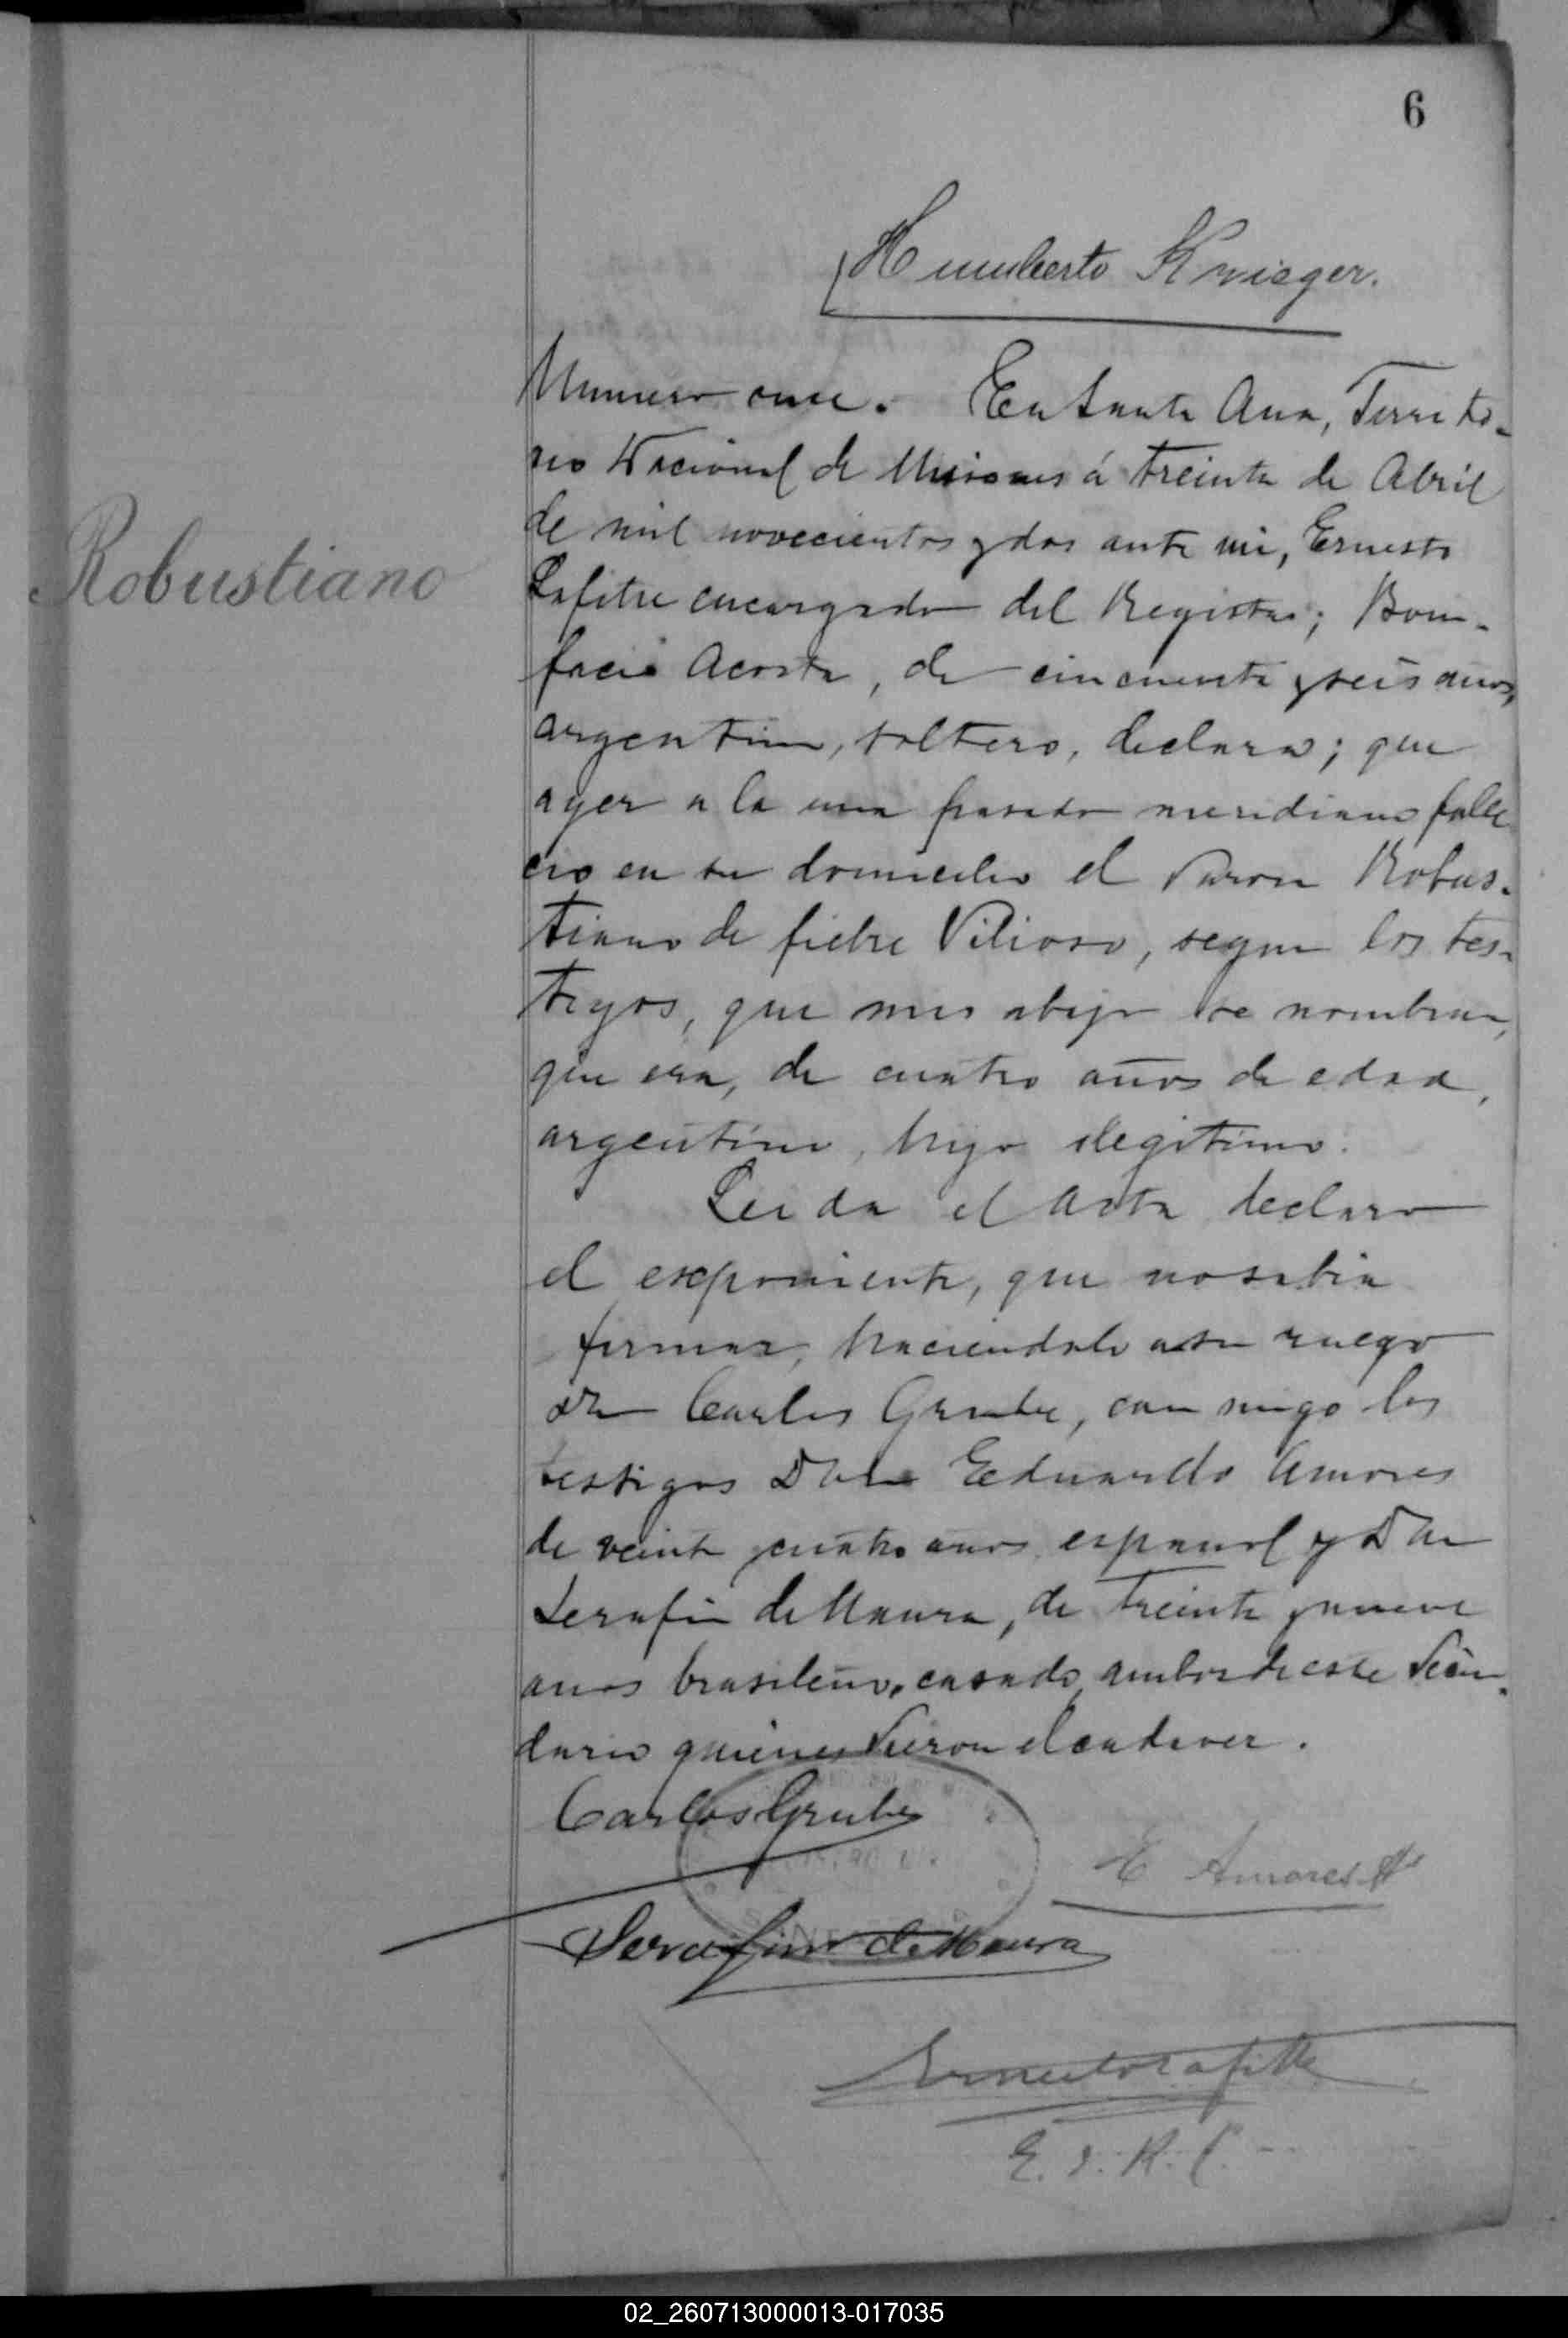 6
Humberto Krieger.
Numero once. En Santa Ana, Territo-
rio Nacional de Misiones á treinta de Abril
de mil novecientos y dos ante mi, Ernesto
Lafitte encargado del Registro; Boni-
facio Acosta, de cincuenta y seis años,
argentino, soltero, declara; que
ayer a la una pasado meridiano falle
cio en su domicilio el varon Robus-
tiano de fiebre Viliosa, segun los tes-
tigos, que mas abajo se nombran,
que era, de cuatro años de edad,
argentino, hijo ilegitimo.
Leida el acta declaro
el exponiente, que no sabia
firmar, haciendolo a su ruego
Dn Carlos Grube, con migo los
testigos Don Eduardo Amores
de veinte y cuatro años español y Don
Serafin de Maura, de treinta y nueve
años brasileño, casado, ambos de este Vecin-
dario quienes vieron el cadaver.
Robustiano
Carlos Grube
E Amores
Serafin de Maura
Ernesto Lafitte
E. d. R. C.
02_260713000013-017035